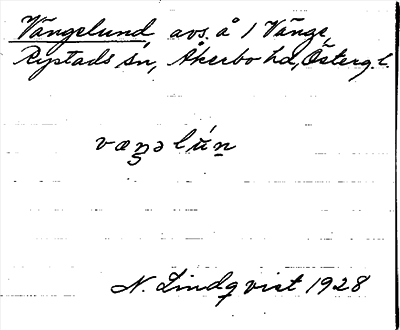 Vängelund, avs. å 1 Vänge,
Rystads sn, Åkerbo hd, Österg. l.
N. Lindqvist 1928